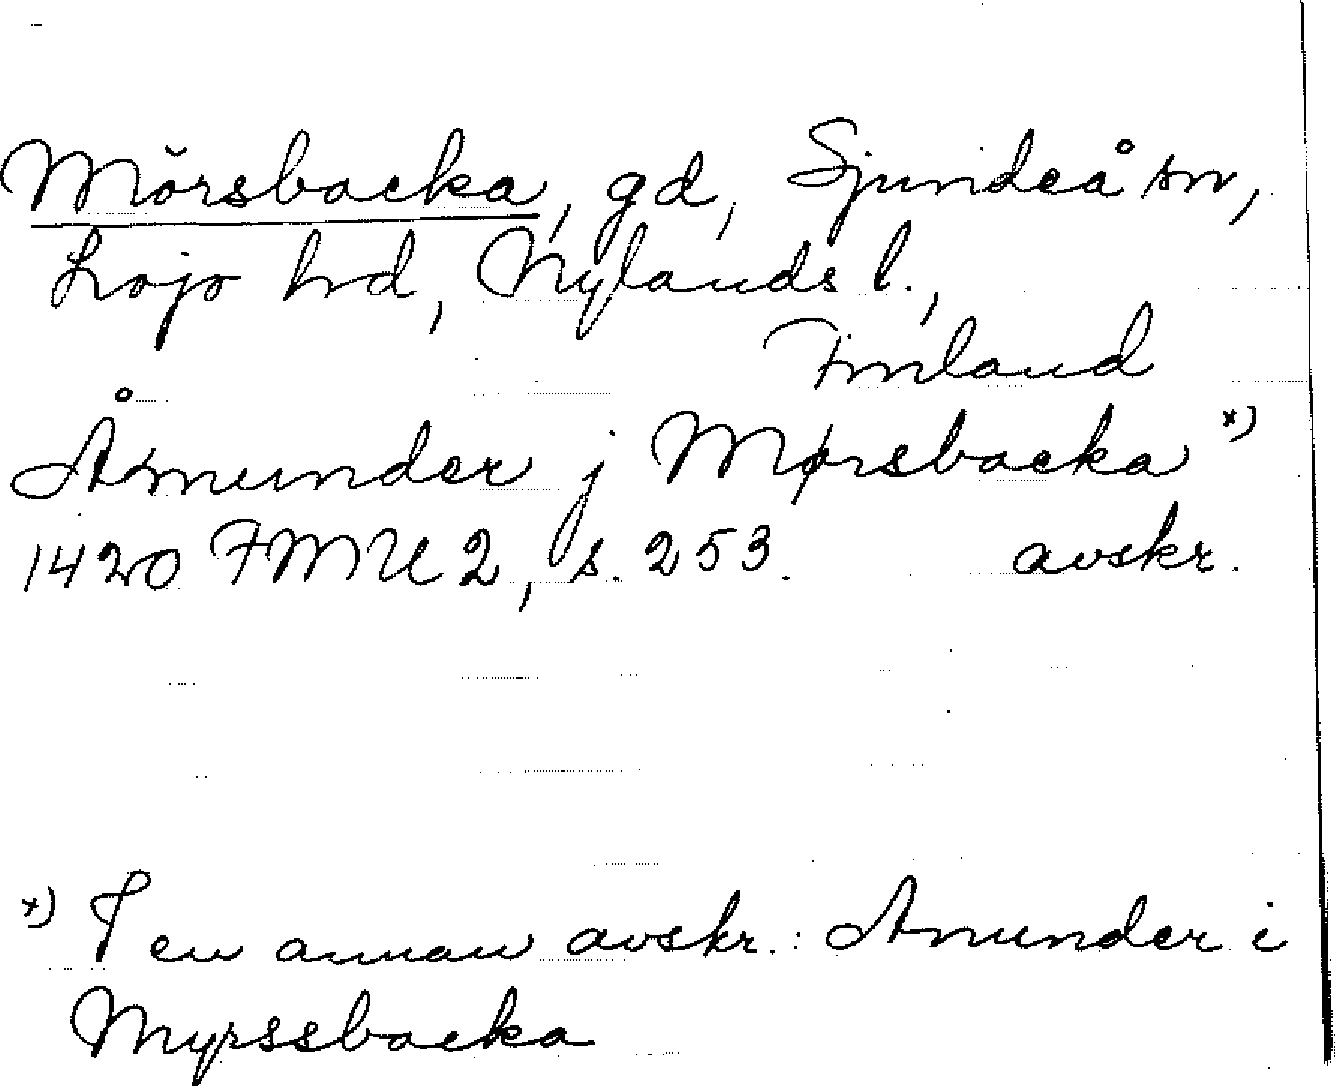 Mörsbacka, gd, Sjundeå sn,
Lojo hd, Nylands l.,
Finland
Åmunder j Mørsbacka x)
1420 FMU 2, s. 253. avskr.
x) I en annan avskr.: Amunder i
Myrssbacka